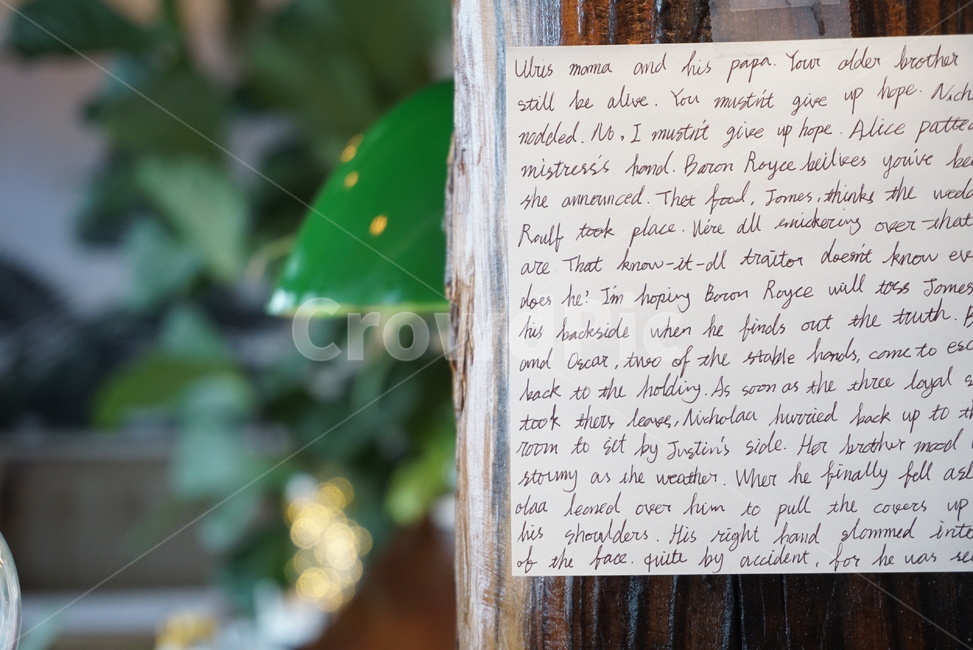 Ulris mama and his papa. Your older brother
still be alive. You mustn't give up hope. Nich
nodded. No, I mustn't give up hope. Alice patte
mistress's hand. Baron Royce beilives you've be
she announced. Thet food, Jomes, thinks the wed
Roulf took place. We're all snickering over-that
are That know-it-all traitor doesn't know ev
does he? I'm hoping Boron Royce will toss Jomes
his backside when he finds out the truth. B
and Oscar, two of the stable hands, come to esc
back to the holding. As soon as the three loyal s
took thers leaves, Nicholaa hurried back up to th
room to sit by Justin's side. Her brother mood
stormy as the weather. When he finally fell asl
olaa leoned over him to pull the covers up
his shoulders. His right hand slommed into
of the face. quite by accident, for he was se
CrowdPic